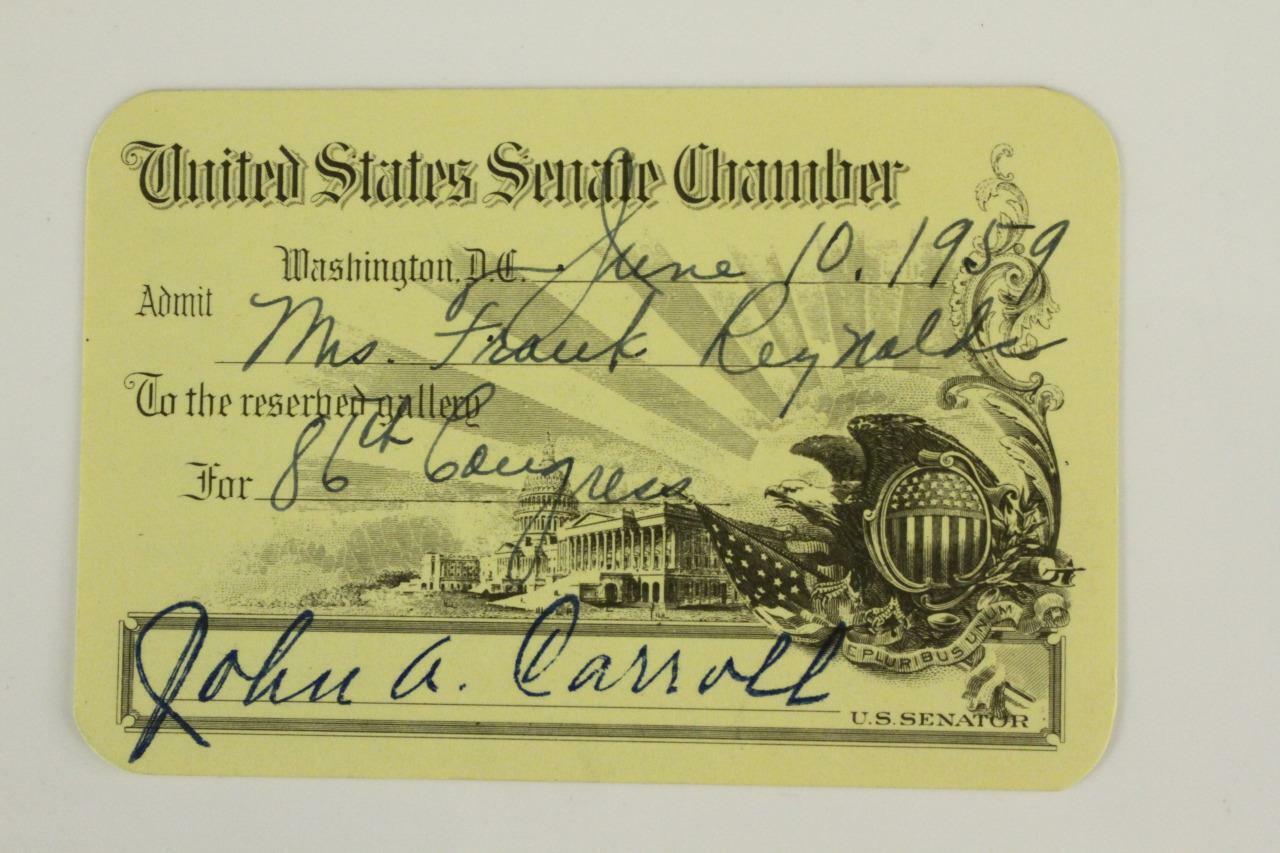 United States Senate Chamber
Washington, D.C. June 10, 1959
Admit Mrs. Frank Reynolds
To the reserved gallery
For 86th Congress
E PLURIBUS UNUM
John A. Carroll
U.S. SENATOR